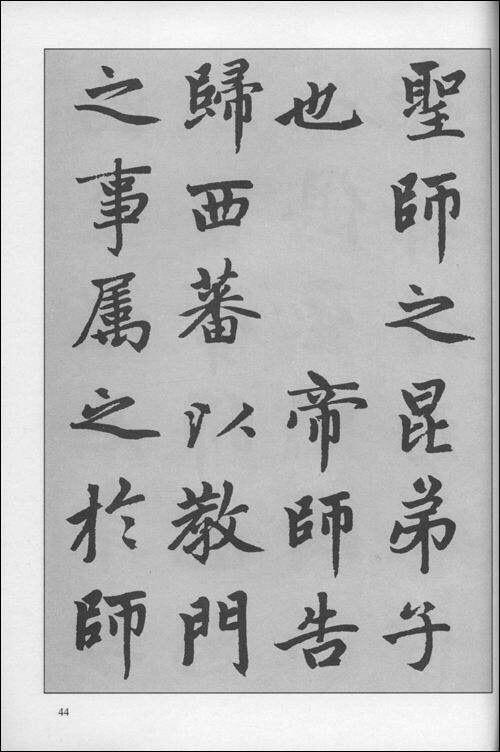 聖師之昆弟子
也 帝師告
歸西蕃以教門
之事属之於師
44